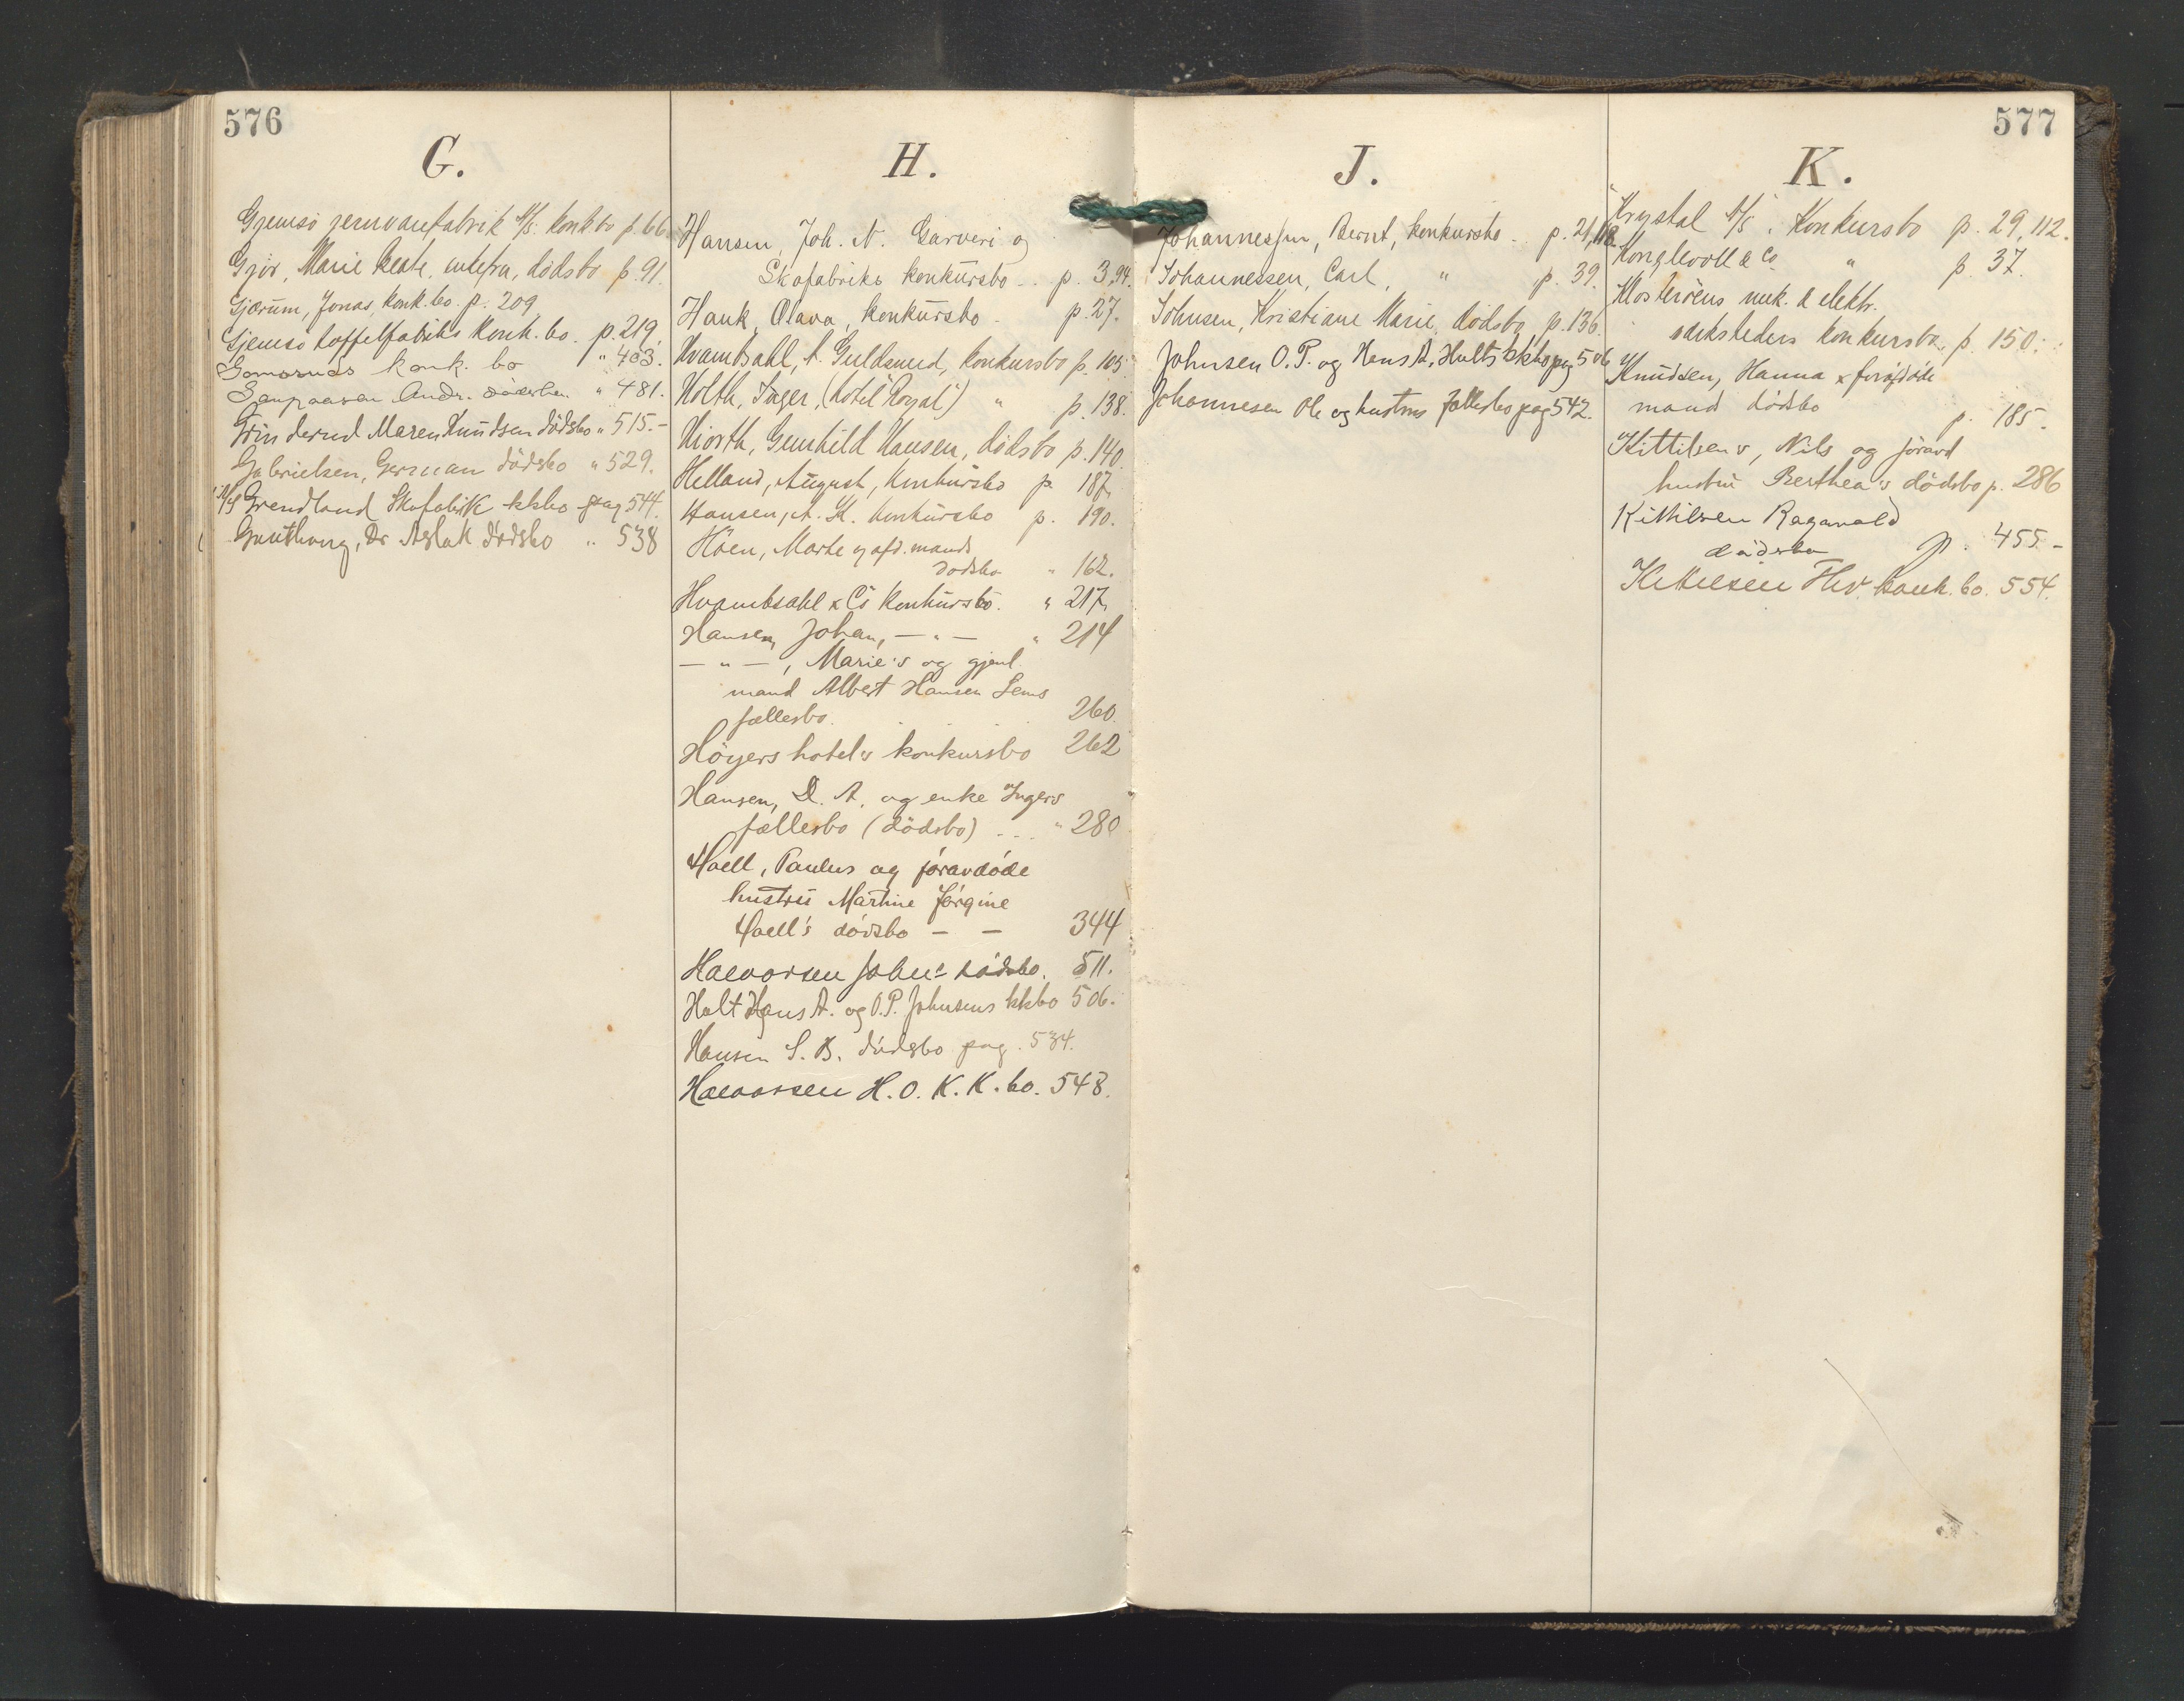 576
G.
Gjemsö jernvarefabrik A/S. konkbo p. 66
Gjör, Marie Beate, enkefru, dödsbo p. 91.
Gjærum, Jonas, konk.bo. p. 209
Gjemsö toffelfabriks konk. bo. p. 219.
konk. bo " 403.
Andr. dödsbo. " 481.
Grinderud Maren Knudsen dödsbo " 515.-
Gabrielsen, German dödsbo " 529.
A/S Grendland Skofabrik kkbo pag 544.
Dr Aslak dödsbo " 538
H.
Hansen, Joh. N. Garveri og
Skofabriks konkursbo .. p. 3,94.
Hauk, Olava, konkursbo - p. 27.
Hvambsahl, A. Guldsmed, konkursbo p. 105.
Holth, Inger, (Hotel Royal) " p. 138.
Hiorth, Gunhild Hansen, dödsbo p. 140.
Helland, August, konkursbo p. 187.
Hansen, A. K. konkursbo p. 190.
Höen, Marte og afd. mands
dödsbo " 162.
Hvambsahl & Co konkursbo. " 217.
Hansen, Johan, — " — " 214
— " —, Marie's og gjenl.
mand Albert Hansen Lems
fællesbo. 260.
Höyers hotel's konkursbo 262
Hansen, D. A. og enke Ingers
fællesbo (dödsbo) ... " 280
Hoell, Paulus og foravdöde
hustru Martine Jörgine
Hoell's dödsbo - - 344
Halvorsen Johns dödsbo. 511.
Holt Hans A. og O.P. Johnsens kkbo 506.
Hansen S. B. dödsbo pag. 534.
Halvorsen H. O. K. K. bo. 548.
J.
Johannessen, Bernt, konkursbo - p. 21,118.
Johannessen, Carl, " p. 39.
Johnsen, Kristiane Marie, dödsbo, p. 136.
Johnsen O. P. og Hans A. Holts kkbo pag 506
Johannesen Ole og hustrus fællesbo pag 542.
577
K.
"Krystal" A/S, Konkursbo p. 29, 112.
Kongkvoll & Co " p. 37.
Klosteröens mek. & elektr.
verksteders konkursbo, p. 150.
Knudsen, Hanna & forafdöde
mand dödsbo p. 185.
Kittilsen's, Nils og foravd
hustru Berthea's dödsbo p. 286
Kittilsen Ragnvald
dödsbo p. 455 -
Kittilsen Thv. konk. bo. 554.